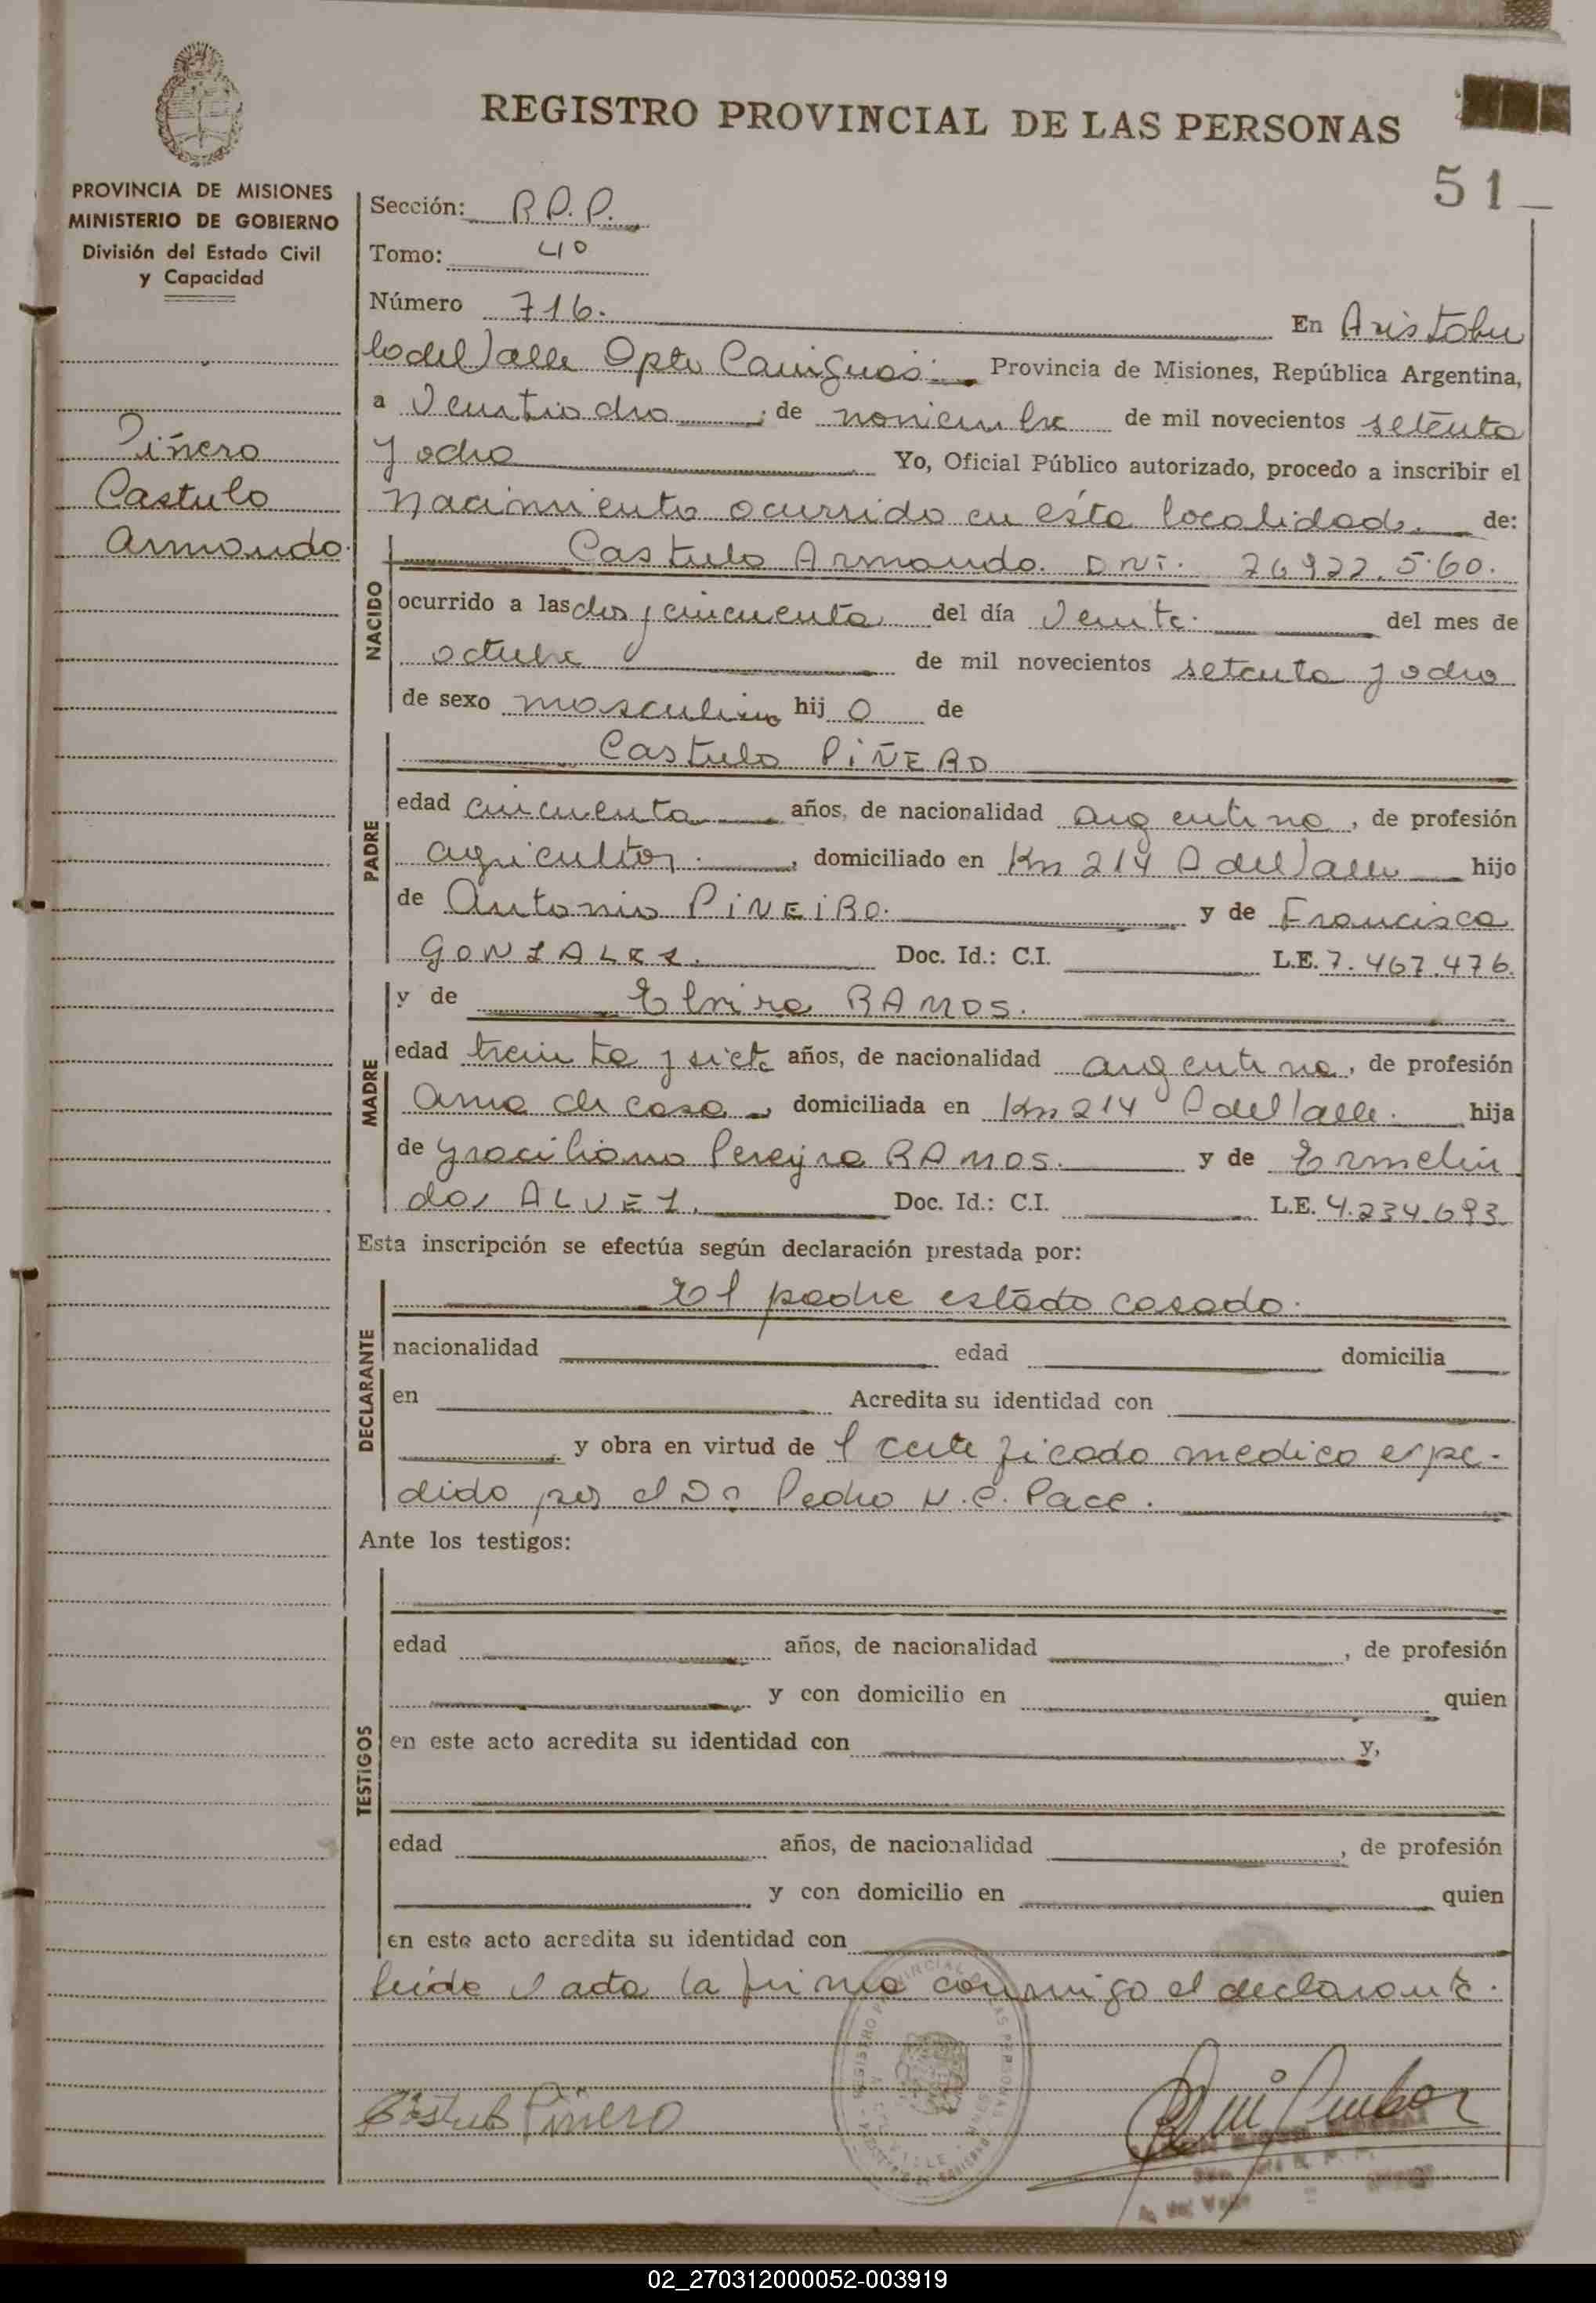 REGISTRO PROVINCIAL DE LAS PERSONAS
51
PROVINCIA DE MISIONES
MINISTERIO DE GOBIERNO
División del Estado Civil
y Capacidad
Piñero
Castulo
Armando.
Sección: R.P.P.
Tomo: 4º
Número 716. En Aristobu
lo del Valle Dpto Cainguás. Provincia de Misiones, República Argentina,
a Veintiocho de noviembre de mil novecientos setenta
y ocho Yo, Oficial Público autorizado, procedo a inscribir el
Nacimiento ocurrido en ésta localidad. de:
NACIDO
Castulo Armando. DNI. 26922.560.
ocurrido a las dos y cincuenta del día Veinte. del mes de
octubre de mil novecientos setenta y ocho
de sexo masculino hij o de
PADRE
Castulo PiÑERO
edad cincuenta años, de nacionalidad argentina, de profesión
agricultor. , domiciliado en Km 214 A del Valle hijo
de Antonio PiNEiRO. y de Francisca
GONZALEZ. Doc. Id.: C.I. L.E. 7.467.476.
MADRE
y de Elvira RAMOS.
edad treinta y siete años, de nacionalidad argentina, de profesión
Ama de casa , domiciliada en Km 214 A del Valle. hija
de Graciliano Pereyra RAMOS. y de Ermelin
da ALVEZ. Doc. Id.: C.I. L.E. 4.234.693
Esta inscripción se efectúa según declaración prestada por:
DECLARANTE
El padre estado casado.
nacionalidad edad domicilia
en Acredita su identidad con
y obra en virtud de l certificado medico expe-
dido por el Dr Pedro N.C. Pace.
Ante los testigos:
TESTIGOS
edad años, de nacionalidad , de profesión
y con domicilio en quien
en este acto acredita su identidad con y,
edad años, de nacionalidad , de profesión
y con domicilio en quien
en este acto acredita su identidad con
leída el acta la firma conmigo el declarante.
Castulo Piñero
A. del Valle
02_270312000052-003919